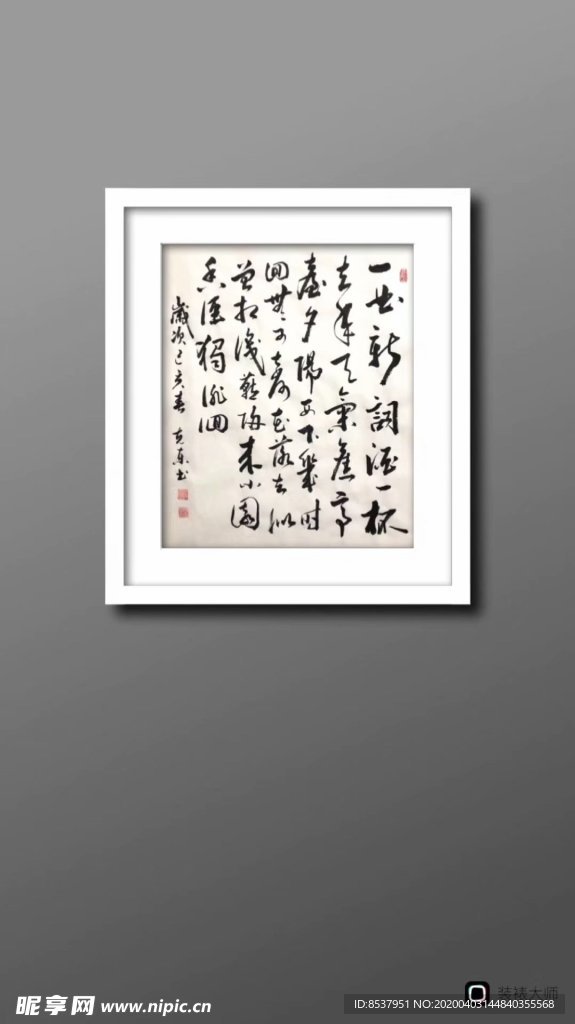 一曲新詞酒一杯
去年天氣舊亭
臺夕陽西下幾時
回無可奈何花落去似
曾相識燕歸來小園
香徑獨徘徊
歲次己亥春 克東書
装裱大师
昵享网 www.nipic.cn
ID:8537951 NO:20200403144840355568